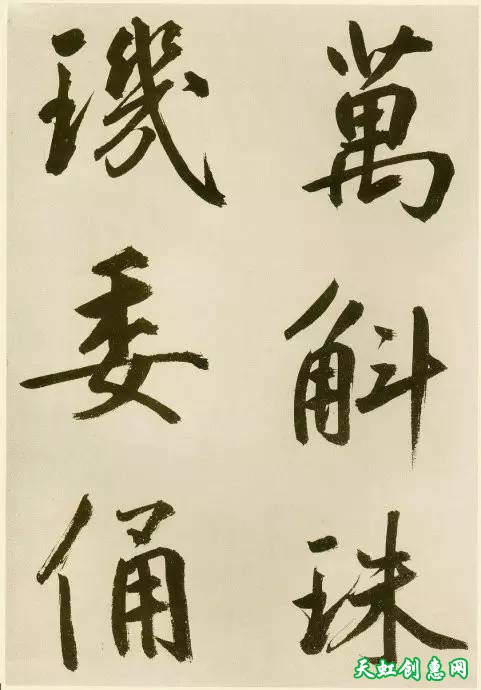 萬斛珠
璣委俑
天虹创惠网